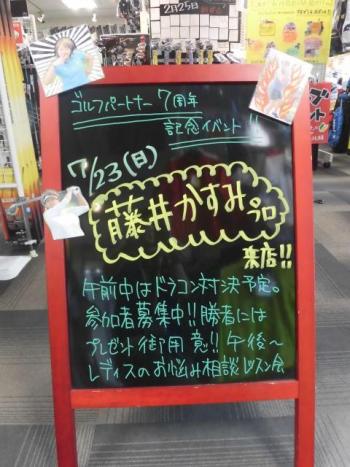 2月25日
ゴルフパートナー7周年
記念イベント!!
7/23(日)
藤井かすみプロ
来店!!
午前中はドラコン対決予定。
参加者募集中!!勝者には
プレゼント御用意!!午後〜
レディスのお悩み相談レッスン会